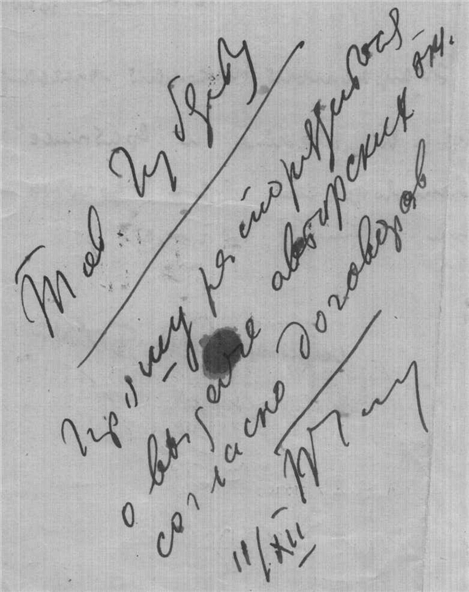 Тов
Прошу распорядиться
о выдаче авторских
согласно договоров
11/XII